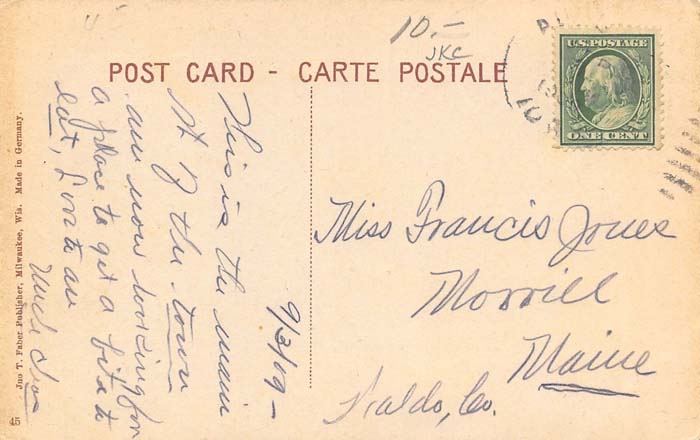 10.-
JKC
POST CARD - CARTE POSTALE
U.S. POSTAGE
ONE CENT
9/3/09 -
This is the main
st of the town
am now looking for
a place to get a bite to
eat, Love to all
Uncle
Miss Francis Jones
Morrill
Maine
Waldo, Co.
Jno T. Faber Publisher, Milwaukee, Wis. Made in Germany.
45